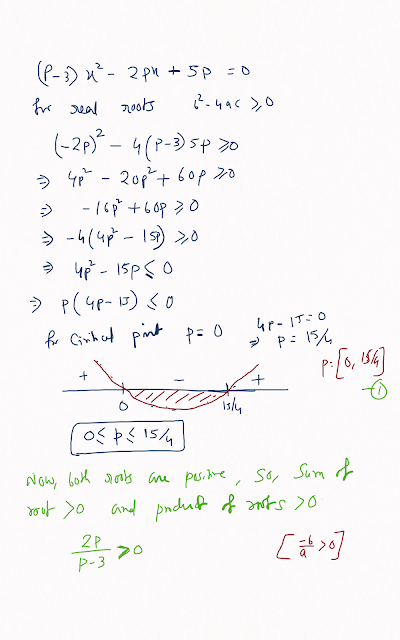 (P-3) x² - 2px + 5p = 0
for real roots b² - 4ac ≥ 0
(-2p)² - 4(P-3) 5p ≥ 0
⇒ 4p² - 20p² + 60p ≥ 0
⇒ -16p² + 60p ≥ 0
⇒ -4(4p² - 15p) ≥ 0
⇒ 4p² - 15p ≤ 0
⇒ P(4p-15) ≤ 0
for Critical point p = 0 4p-15=0
⇒ p = 15/4
p:[0, 15/4]
-①
+ - +
0 15/4
0 ≤ p ≤ 15/4
Now, both roots are positive, so, sum of
root >0 and product of roots >0
2p/p-3 > 0 [-b/a > 0]